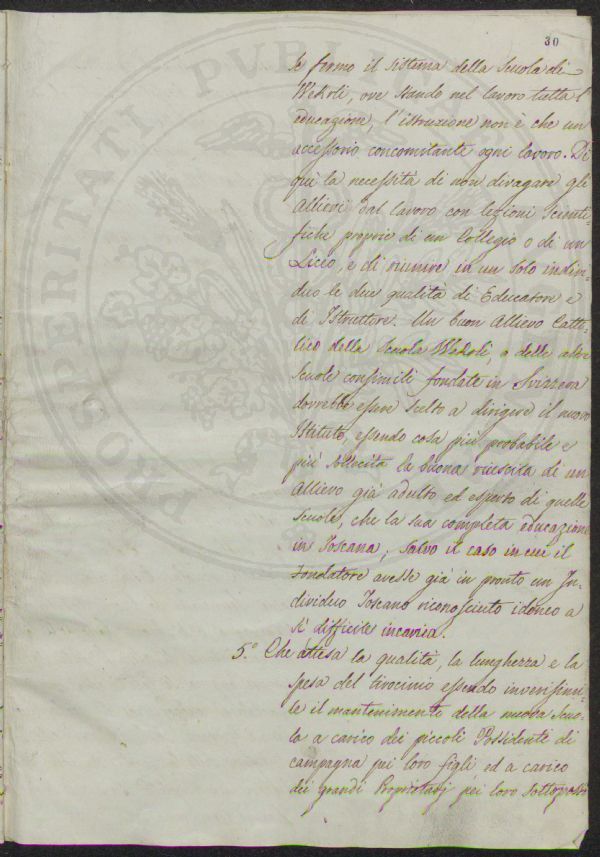 30
le fermo il sistema della Scuola di
Wehrli, ove stando nel lavoro tutta l'
educazione, l'istruzione non è che un
accessorio concomitante ogni lavoro. Di
quì la necessità di non divagare gli
Allievi dal lavoro con lezioni Scienti-
fiche proprie di un Collegio o di un
Liceo, e di riunire in un solo indivi-
duo le due qualità di Educatore e
di Istruttore. Un buon Allievo Catto-
lico della Scuola Wehrli, o delle altre
Scuole consimili fondate in Svizzera
dovrebbe essere scelto a dirigere il nuovo
Istituto, essendo cosa più probabile e
più sollecita la buona riuscita di un
Allievo già adulto ed esperto di quelle
Scuole, che la sua completa educazione
in Toscana; Salvo il caso in cui il
Fondatore avesse già in pronto un In-
dividuo Toscano riconosciuto idoneo a
sì difficile incarico.
5.° Che attesa la qualità, la lunghezza e la
spesa del tirocinio essendo inverisimi-
le il mantenimento della nuova Scuo-
la a carico dei piccoli Possidenti di
campagna pei loro figli, ed a carico
dei grandi Proprietarj pei loro Sottoposti
PROSPERITATI PUBLICAE